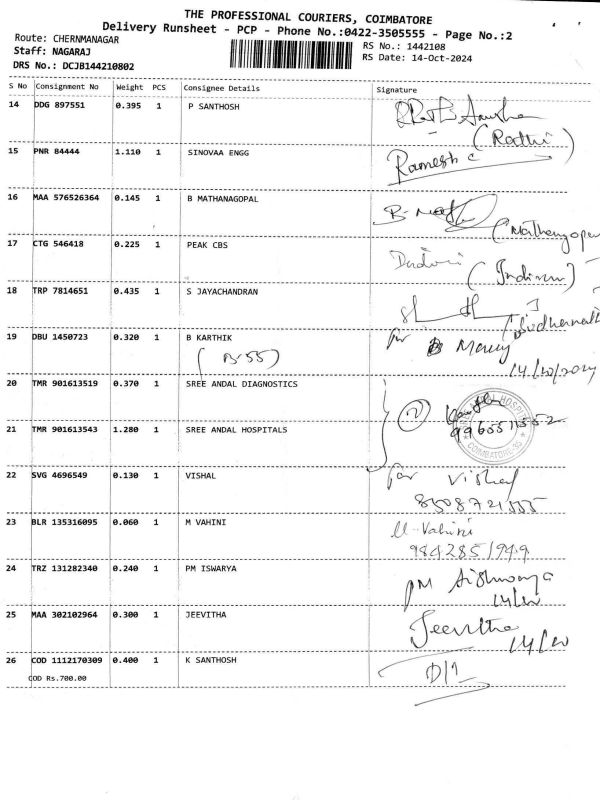 THE PROFESSIONAL COURIERS, COIMBATORE
Delivery Runsheet - PCP - Phone No.:0422-3505555 - Page No.:2
Route: CHERNMANAGAR
Staff: NAGARAJ
DRS No.: DCJB144210802
RS No.: 1442108
RS Date: 14-Oct-2024
S No Consignment No Weight PCS Consignee Details Signature
14 DDG 897551 0.395 1 P SANTHOSH
(Rathi)
15 PNR 84444 1.110 1 SINOVAA ENGG Ramesh
16 MAA 576526364 0.145 1 B MATHANAGOPAL
17 CTG 546418 0.225 1 PEAK CBS
18 TRP 7814651 0.435 1 S JAYACHANDRAN
19 DBU 1450723 0.320 1 B KARTHIK for
(B-55)
14/10/2024
20 TMR 901613519 0.370 1 SREE ANDAL DIAGNOSTICS
(2)
21 TMR 901613543 1.280 1 SREE ANDAL HOSPITALS
HOSPITAL
COIMBATORE-35
22 SVG 4696549 0.130 1 VISHAL for Vishal
8508721555
23 BLR 135316095 0.060 1 M VAHINI M-Vahini
9842851949
24 TRZ 131282340 0.240 1 PM ISWARYA PM Aishwarya
14/10
25 MAA 302102964 0.300 1 JEEVITHA Jeevitha
14/10
26 COD 1112170309 0.400 1 K SANTHOSH D/1
COD Rs.700.00